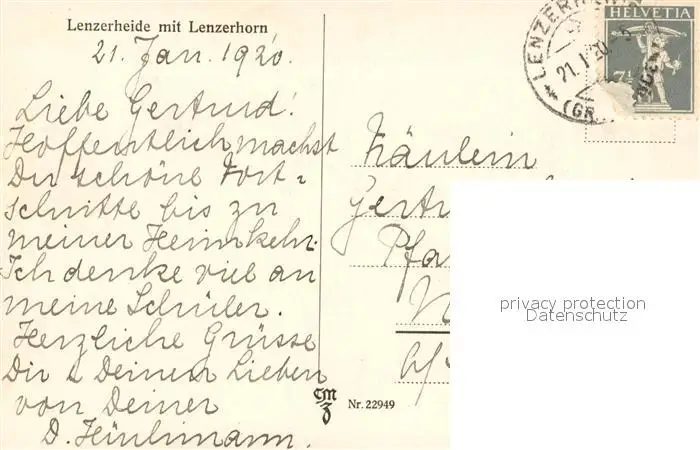 Lenzerheide mit Lenzerhorn
21. Jan. 1920.
Liebe Gertrud!
Hoffentlich machst
Du schöne Fort-
schritte bis zu
meiner Heimkehr.
Ich denke viel an
meine Schüler.
Herzliche Grüsse
Dir & Deinen Lieben
von Deiner
D. Hürlimann.
Nr. 22949
HELVETIA
7½
LENZERHEIDE
21. I. 20.
(GR
Fräulein
Gertr
Pfa
privacy protection
Datenschutz